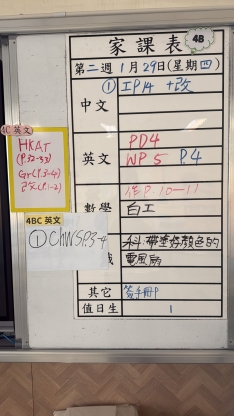 家課表 4B
第二週 1月29日(星期四)
中文
① IP14 +改
4C 英文
HKAT
(P.32-33)
Gr(P.3-4)
改(P.1-2)
英文
PD4
WP5 P.4
P.10-11
數學
白工
4BC 英文
① ChWS P.3-4
科:帶塗好顏色的
電風扇
其它
簽手冊
值日生
1